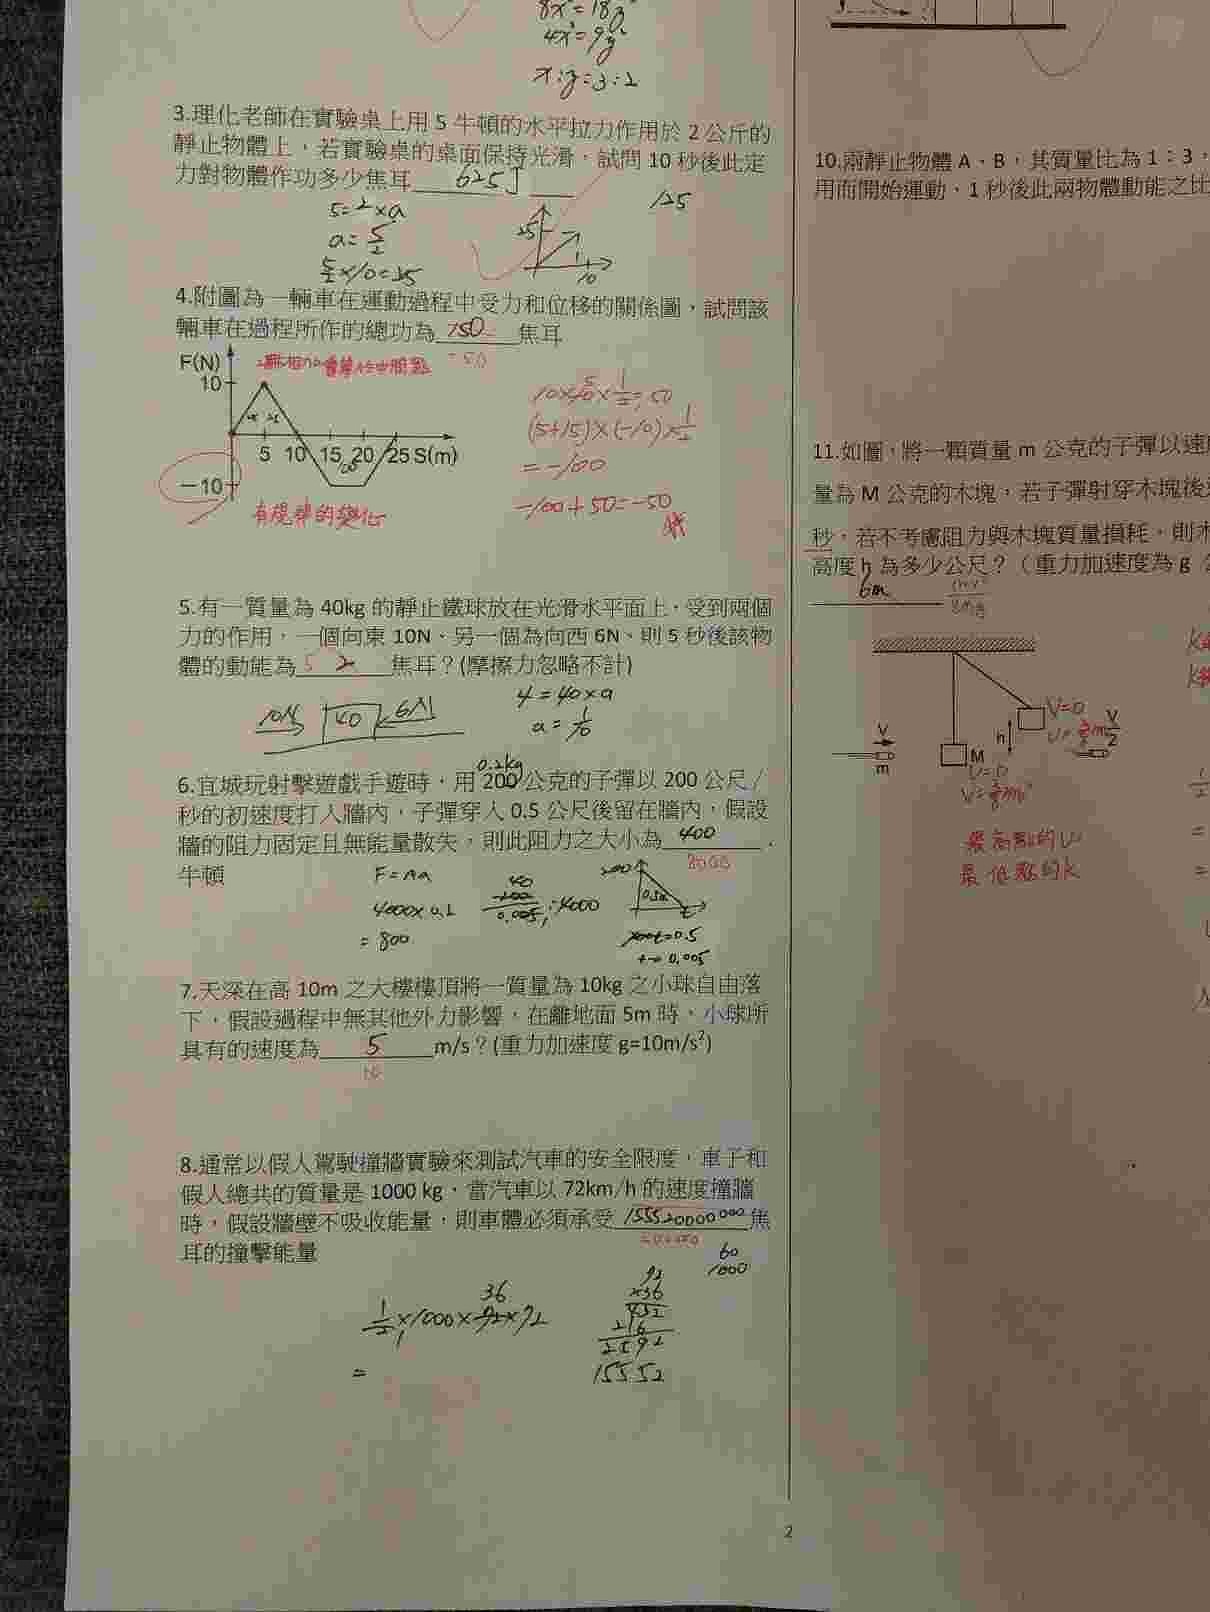 8x²=18y²
4x²=9y²
x:y=3:2
3.理化老師在實驗桌上用 5 牛頓的水平拉力作用於 2 公斤的
靜止物體上，若實驗桌的桌面保持光滑，試問 10 秒後此定
力對物體作功多少焦耳 625J
125
5=2×a
a=5/2
5/2×10=25
25
10
4.附圖為一輛車在運動過程中受力和位移的關係圖，試問該
輛車在過程所作的總功為 750 焦耳
-50
F(N)
10
5 10 15 20 25 S(m)
-10
有規律的變化
10×10×1/2=50
(5+15)×(-10)×1/2
=-100
-100+50=-50
5.有一質量為 40kg 的靜止鐵球放在光滑水平面上，受到兩個
力的作用，一個向東 10N、另一個為向西 6N、則 5 秒後該物
體的動能為 5 2 焦耳？(摩擦力忽略不計)
10N 40 6N
4=40×a
a=1/10
0.2kg
6.宜城玩射擊遊戲手遊時，用 200 公克的子彈以 200 公尺/
秒的初速度打入牆內，子彈穿入 0.5 公尺後留在牆內，假設
牆的阻力固定且無能量散失，則此阻力之大小為 400 .
牛頓
8000
F=ma
4000×0.2
=800
40
200
0.005
=4000
200
0.5m
t
t=0.005
7.天深在高 10m 之大樓樓頂將一質量為 10kg 之小球自由落
下，假設過程中無其他外力影響，在離地面 5m 時，小球所
具有的速度為 5 m/s？(重力加速度 g=10m/s²)
10
8.通常以假人駕駛撞牆實驗來測試汽車的安全限度，車子和
假人總共的質量是 1000 kg，當汽車以 72km/h 的速度撞牆
時，假設牆壁不吸收能量，則車體必須承受 155520000000 焦
耳的撞擊能量
200000
60
1000
36
1/2×1000×72×72
=
72
×36
432
216
2592
15552
2
10.兩靜止物體 A、B，其質量比為 1：3，
用而開始運動、1 秒後此兩物體動能之比
11.如圖，將一顆質量 m 公克的子彈以速
量為 M 公克的木塊，若子彈射穿木塊後
秒，若不考慮阻力與木塊質量損耗，則木
高度 h 為多少公尺？（重力加速度為 g
6m
v
m
M
h
V=0
U=0
v/2
最高點的U
最低點的K